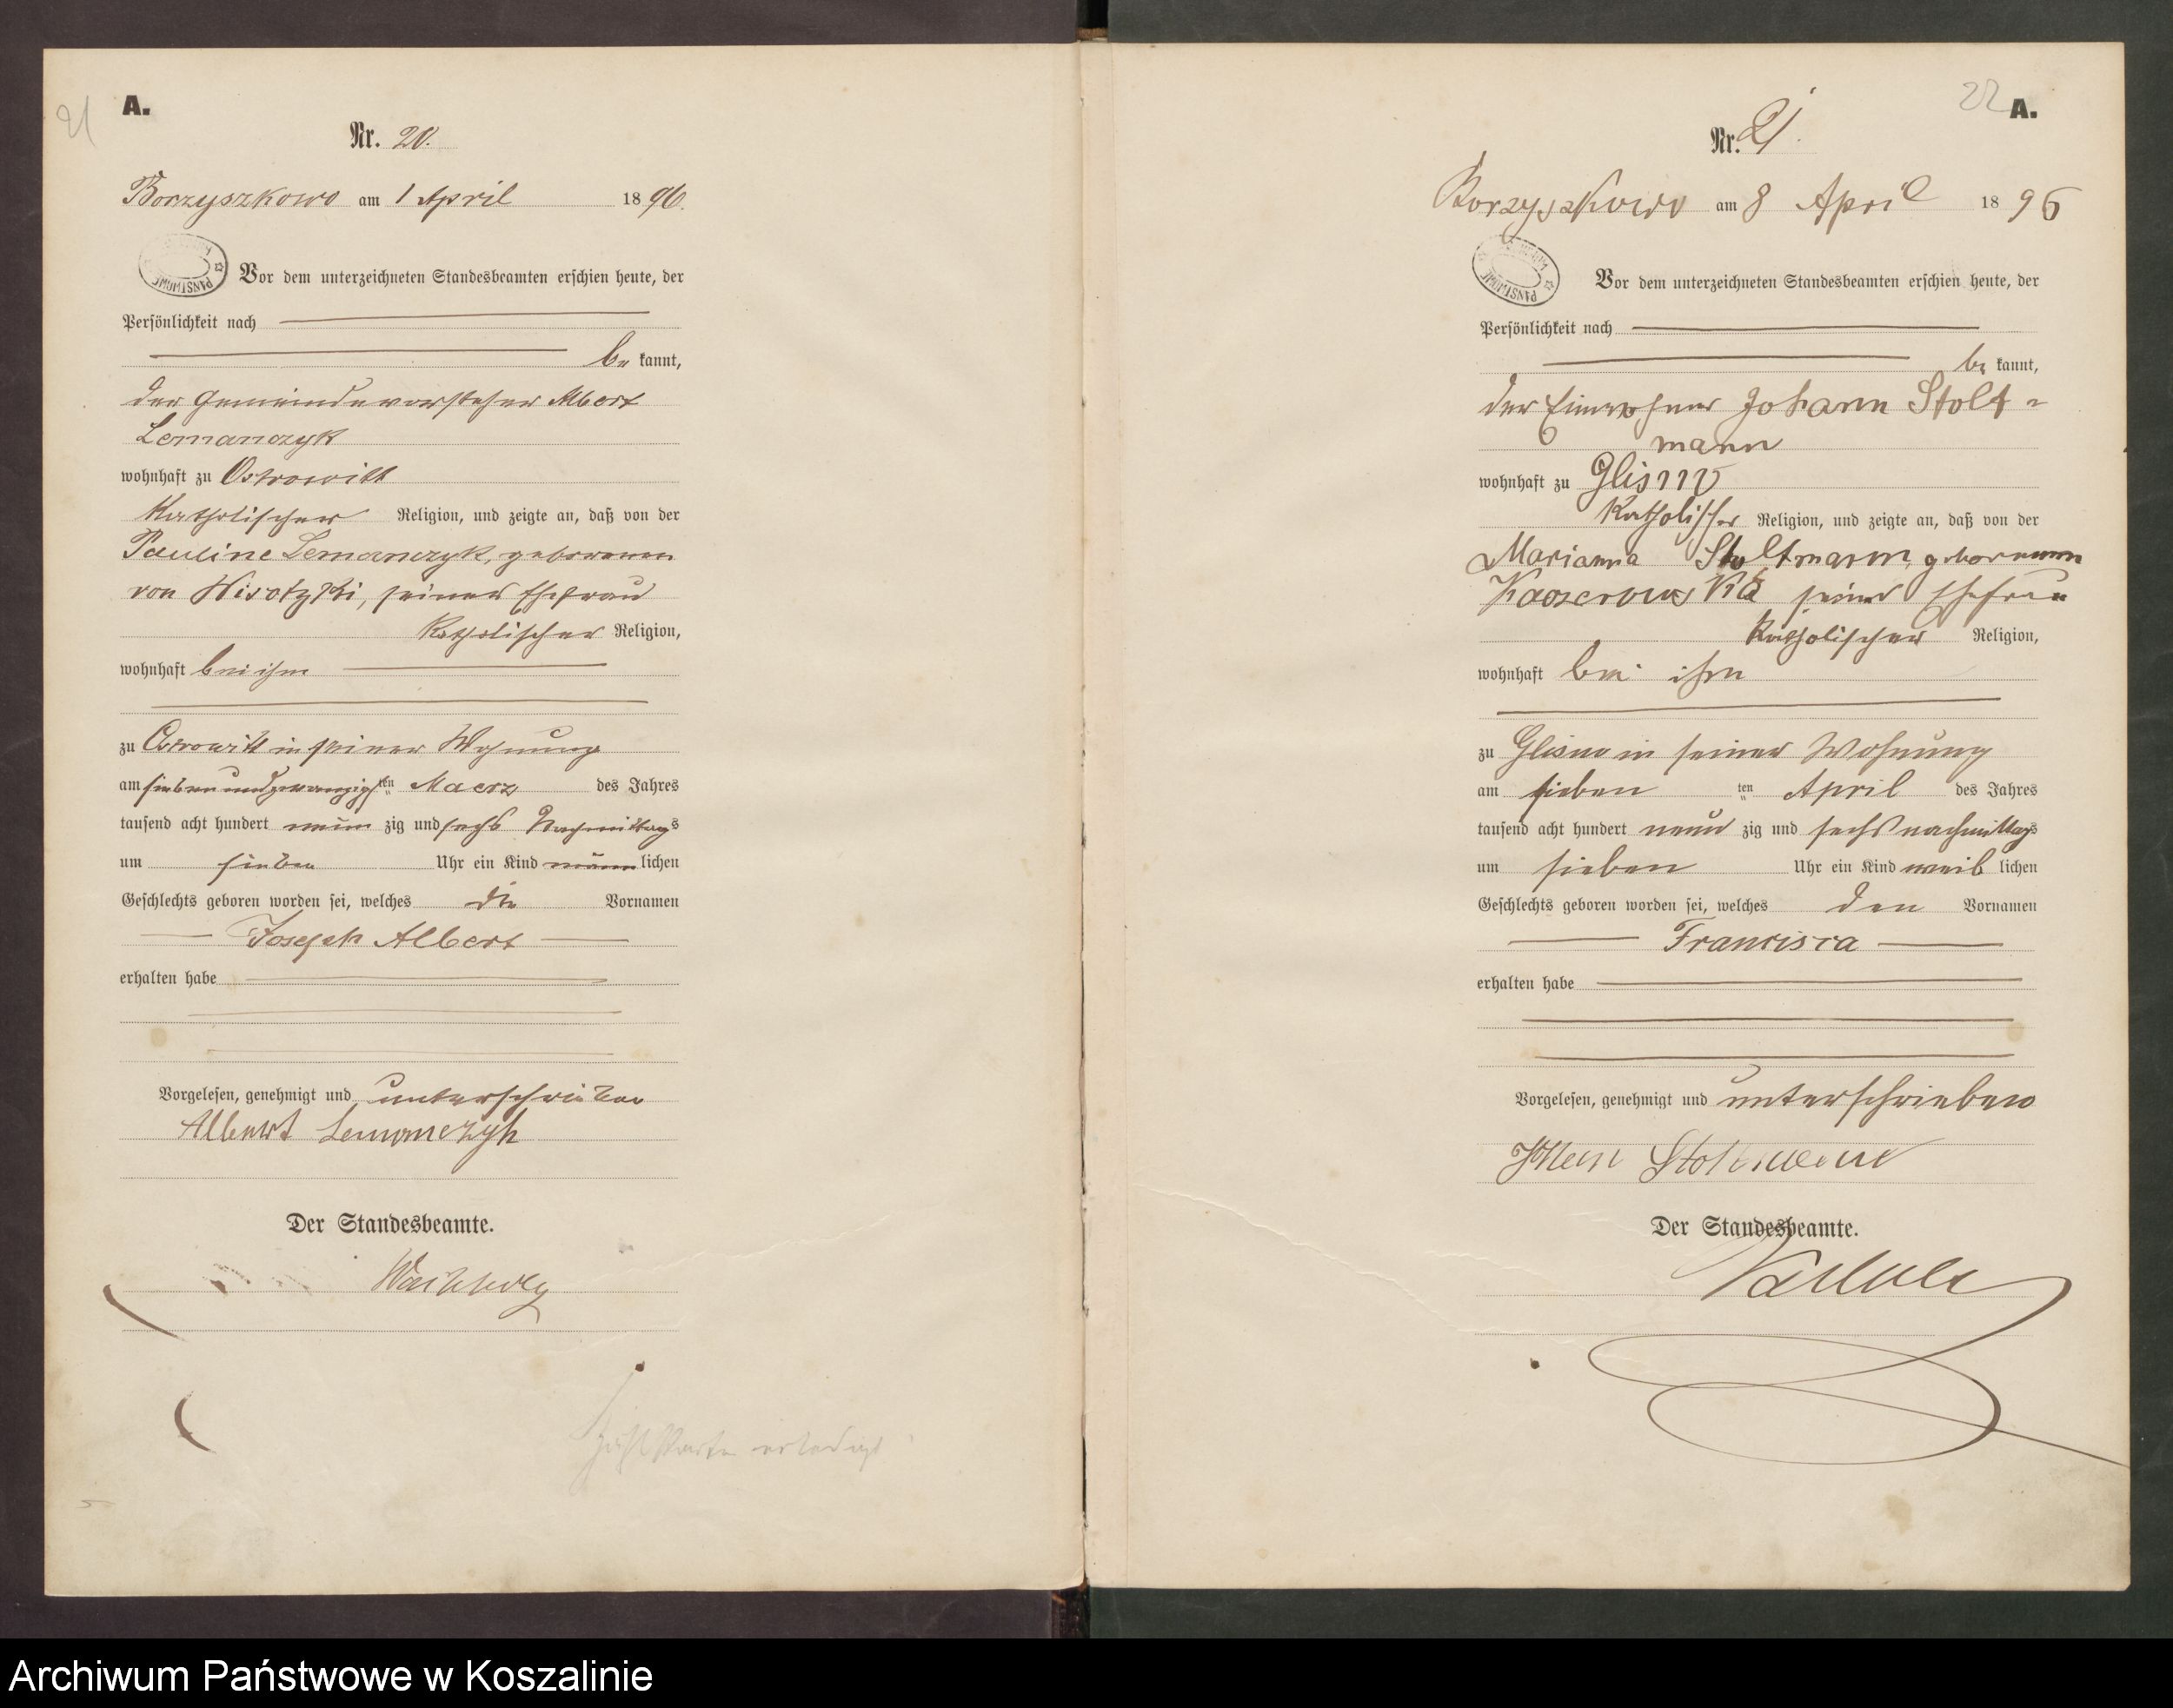 21
A.
Nr. 20.
Borzyszkowo am 1 April 1896.
Vor dem unterzeichneten Standesbeamten erschien heute, der
Persönlichkeit nach
be kannt,
der Gemeindevorsteher Albert
Lemanczyk
wohnhaft zu Ostrowitt
katholischer Religion, und zeigte an, daß von der
Pauline Lemanczyk, geborenen
von Wisotzki, seiner Ehefrau
katholischer Religion,
wohnhaft bei ihm
zu Ostrowitt in seiner Wohnung
am siebenundzwanzigsten Maerz des Jahres
tausend acht hundert neun zig und sechs Nachmittags
um sieben Uhr ein Kind männlichen
Geschlechts geboren worden sei, welches die Vornamen
Joseph Albert
erhalten habe
Vorgelesen, genehmigt und unterschrieben
Albert Lemanczyk
Der Standesbeamte.
Zählkarte erledigt
22
A.
Nr. 21.
Borzyszkowo am 8 April 1896
PAŃSTWOWE
Vor dem unterzeichneten Standesbeamten erschien heute, der
Persönlichkeit nach
be kannt,
der Einwohner Johann Stolt=
mann
wohnhaft zu Glisno
katholischer Religion, und zeigte an, daß von der
Marianna Stoltmann, geborenen
seiner Ehefrau
katholischer Religion,
wohnhaft bei ihm
zu Glisno in seiner Wohnung
am sieben ten April des Jahres
tausend acht hundert neun zig und sechs nachmittags
um sieben Uhr ein Kind weiblichen
Geschlechts geboren worden sei, welches den Vornamen
Francisca
erhalten habe
Vorgelesen, genehmigt und unterschrieben
Johann Stoltmann
Der Standesbeamte.
Archiwum Państwowe w Koszalinie